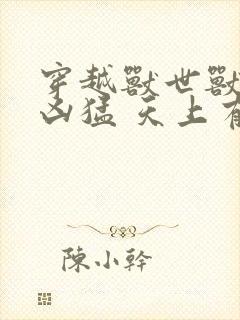 穿越獸世獸
凶猛 天上有
陳小幹